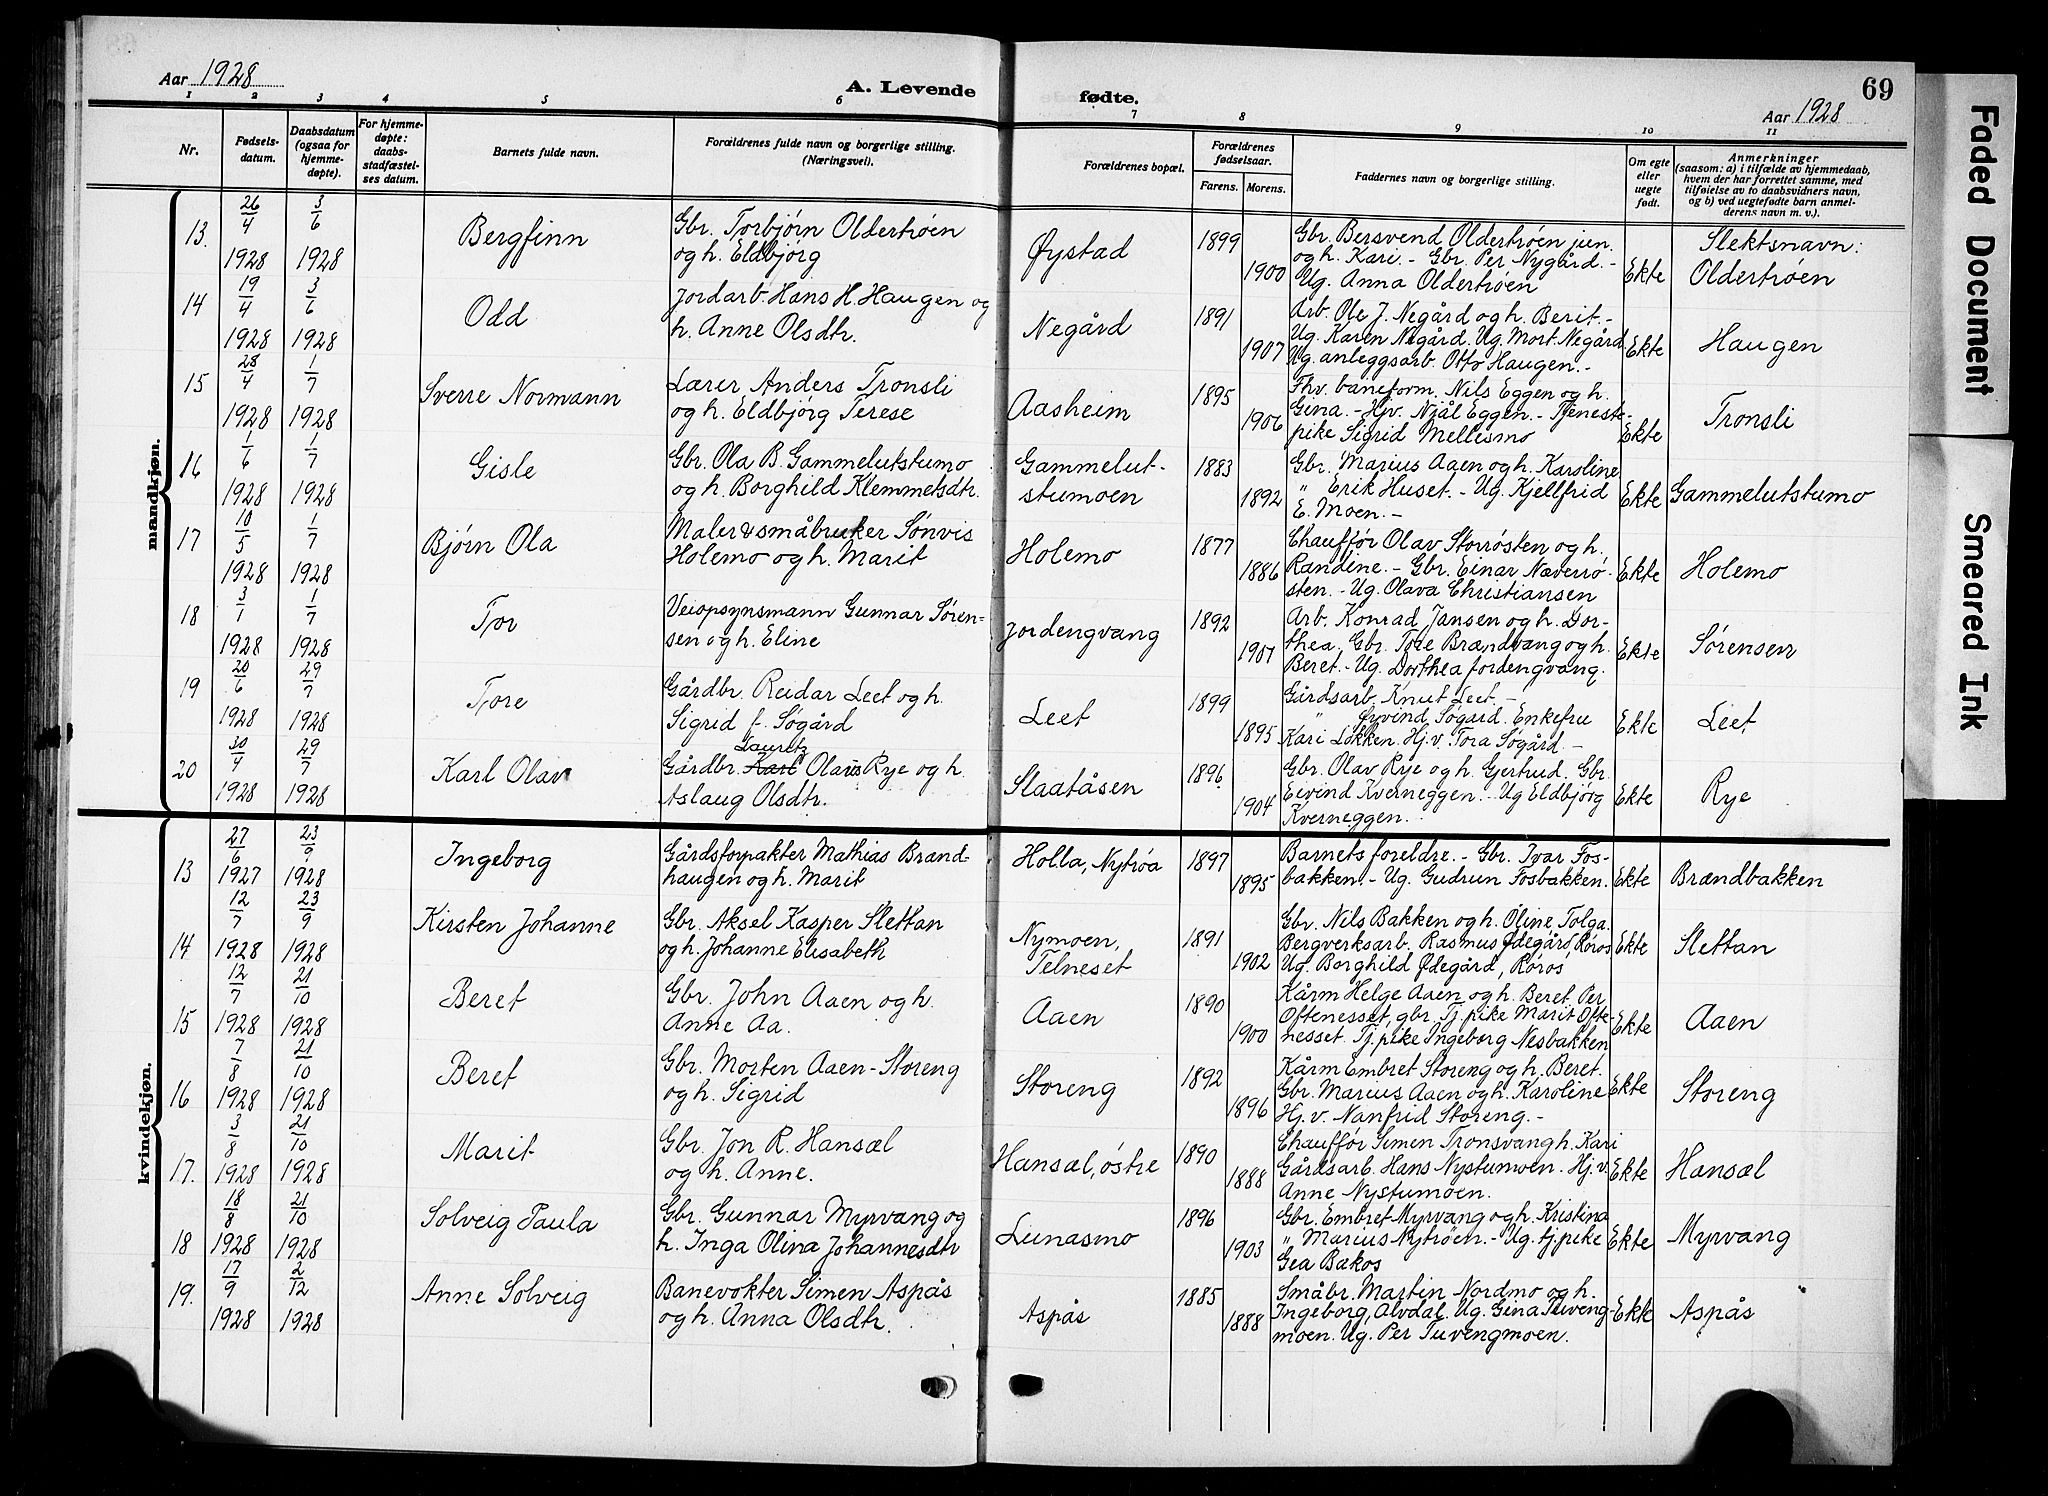 Aar 1928
A. Levende fødte.
69
Aar 1928
1 2 3 4 5 6 7 8 9 10 11
Nr.
Fødsels-
datum.
Daabsdatum
(ogsaa for
hjemme-
døpte).
For hjemme-
døpte:
daabs-
stadfæstel-
ses datum.
Barnets fulde navn.
Forældrenes fulde navn og borgerlige stilling.
(Næringsvei).
Forældrenes bopæl.
Forældrenes
fødselsaar.
Farens. Morens.
Faddernes navn og borgerlige stilling.
Om egte
eller
uegte
født.
Anmerkninger
(saasom: a) i tilfælde av hjemmedaab,
hvem der har forrettet samme, med
tilføielse av to daabsvidners navn,
og b) ved uegtefødte barn anmel-
derens navn m. v.).
mandkjøn.
13. 26/4 1928 3/6 1928
Bergfinn
Gbr. Torbjørn Oldertrøen
og h. Eldbjørg
Øystad
1899 1900
Gbr. Bersvend Oldertrøen jun.
og h. Kari. - Gbr. Per Nygård. -
Ug. Anna Oldertrøen
Ekte
Slektsnavn:
Oldertrøen
14 19/4 1928 3/6 1928
Odd
Jordarb. Hans H. Haugen og
h. Anne Olsdtr.
Negård
1891 1907
Arb. Ole J. Negård og h. Berit. -
Ug. Karen Negård. Ug. Mort. Negård
Ug. anleggsarb. Otto Haugen. -
Ekte
Haugen
15 28/4 1928 1/7 1928
Sverre Normann
Lærer Anders Tronsli
og h. Eldbjørg Terese
Aasheim
1895 1906
Fhv. baneform. Nils Eggen og h.
Gina. - Hjv. Njål Eggen. - Tjeneste-
pike Sigrid Mellesmo
Ekte
Tronsli
16 1/6 1928 1/7 1928
Gisle
Gbr. Ola B. Gammelutstumo
og h. Borghild Klemmetsdtr.
Gammelut-
stumoen
1883 1892
Gbr. Marius Aaen og h. Karoline
" Erik Huset. - Ug. Kjellfrid
E. Moen. -
Ekte
Gammelutstumo
17 10/5 1928 1/7 1928
Bjørn Ola
Maler & småbruker Sønvis
Holemo og h. Marit
Holemo
1877 1886
Chauffør Olav Storrøsten og h.
Randine. - Gbr. Einar Næverrø-
sten. - Ug. Olava Christiansen
Ekte
Holemo
18 3/1 1928 1/7 1928
Tor
Veiopsynsmann Gunnar Søren-
sen og h. Eline
Jordengvang
1892 1901
Arb. Konrad Jansen og h. Dor-
thea. Gbr. Tore Brændvang og h.
Beret. - Ug. Dorthea Jordengvang.
Ekte
Sørensen
19 20/6 1928 29/7 1928
Tore
Gårdbr. Reidar Leet og h.
Sigrid f. Søgård
Leet
1899 1895
Gårdsarb. Knut Leet. -
" Øyvind Søgård. Enkefru
Kari Løkken. Hj.v. Tora Søgård. -
Ekte
Leet
20 30/4 1928 29/7 1928
Karl Olav
Lauritz
Gårdbr. Karl Olaus Rye og h.
Aslaug Olsdtr.
Slaatåsen
1896 1904
Gbr. Olav Rye og h. Gjertrud. Gbr.
Eivind Kverneggen. - Ug Eldbjørg
Kverneggen.
Ekte
Rye
kvindekjøn.
13 27/6 1927 23/9 1928
Ingeborg
Gårdsforpakter Mathias Brand-
haugen og h. Marit
Holla, Nytrøa
1897 1895
Barnets foreldre. - Gbr. Ivar Fos-
bakken. - Ug. Gudrun Fosbakken.
Ekte
Brændbakken
14 12/7 1928 23/9 1928
Kirsten Johanne
Gbr. Aksel Kasper Slettan
og h. Johanne Elisabeth
Nymoen,
Telneset
1891 1902
Gbr. Nils Bakken og h. Oline, Tolga.
Bergverksarb. Rasmus Ødegård, Røros
Ug. Borghild Ødegård, Røros
Ekte
Slettan
15 12/7 1928 21/10 1928
Beret
Gbr. John Aaen og h.
Anne Aa.
Aaen
1890 1900
Kårm Helge Aaen og h. Beret. Per
Oftenesset, gbr. Tj. pike Marit Ofte-
nesset. Tj. pike Ingeborg Nesbakken
Ekte
Aaen
16 7/8 1928 21/10 1928
Beret
Gbr. Morten Aaen-Storeng
og h. Sigrid
Storeng
1892 1896
Kårm Embret Storeng og h. Beret.
Gbr. Marius Aaen og h. Karoline
Hj. v. Nanfrid Storeng. -
Ekte
Storeng
17. 3/8 1928 21/10 1928
Marit
Gbr. Jon R. Hansæl
og h. Anne.
Hansæl, østre
1890 1888
Chauffør Simen Tronsvang h. Kari
Gårdsarb. Hans Nystumoen. Hj. v.
Anne Nystumoen.
Ekte
Hansæl
18 18/8 1928 21/10 1928
Solveig Paula
Gbr. Gunnar Myrvang og
h. Inga Olina Johannesdtr
Lunasmo
1896 1903
Gbr. Embret Myrvang og h. Kristina
" Marius Nytrøen. - Ug. tj. pike
Gea Bakos
Ekte
Myrvang
19. 17/9 1928 2/12 1928
Anne Solveig
Banevokter Simen Aspås
og h. Anna Olsdtr.
Aspås
1885 1888
Småbr. Martin Nordmo og h.
Ingeborg, Alvdal. Ug. Gina Tuveng-
moen. Ug. Per Tuvengmoen.
Ekte
Aspås
Faded Document
Smeared Ink